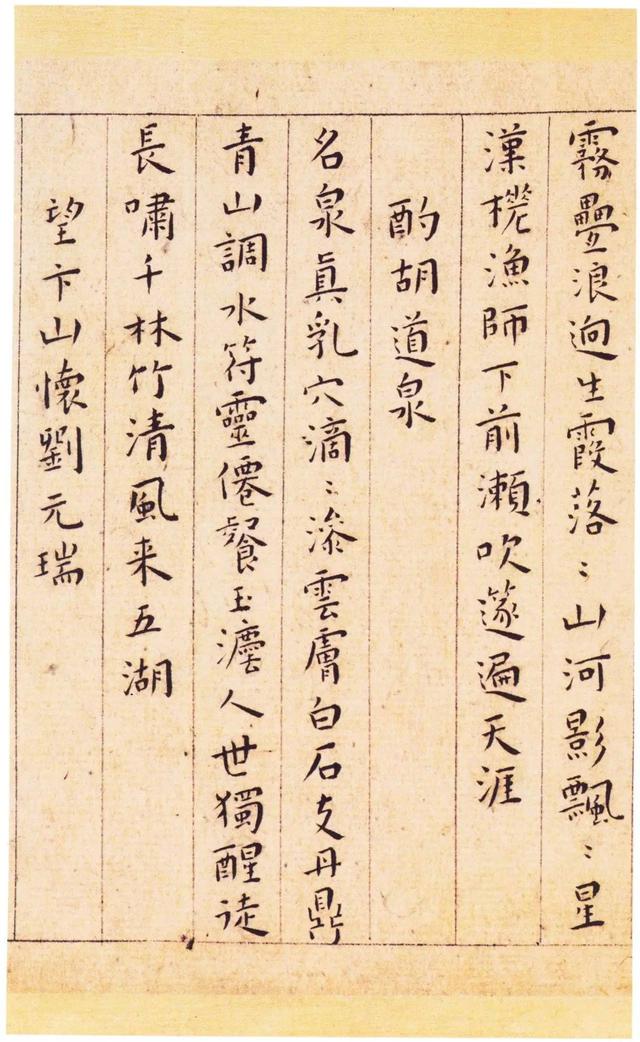 霧疊浪迥生霞落〻山河影飄〻星
漢槎漁師下前瀨吹篴遍天涯
酌胡道泉
名泉眞乳穴滴〻滲雲膚白石支丹鼎
青山調水符靈僊餐玉灋人世獨醒徒
長嘯千林竹清風来五湖
望卞山懷劉元瑞